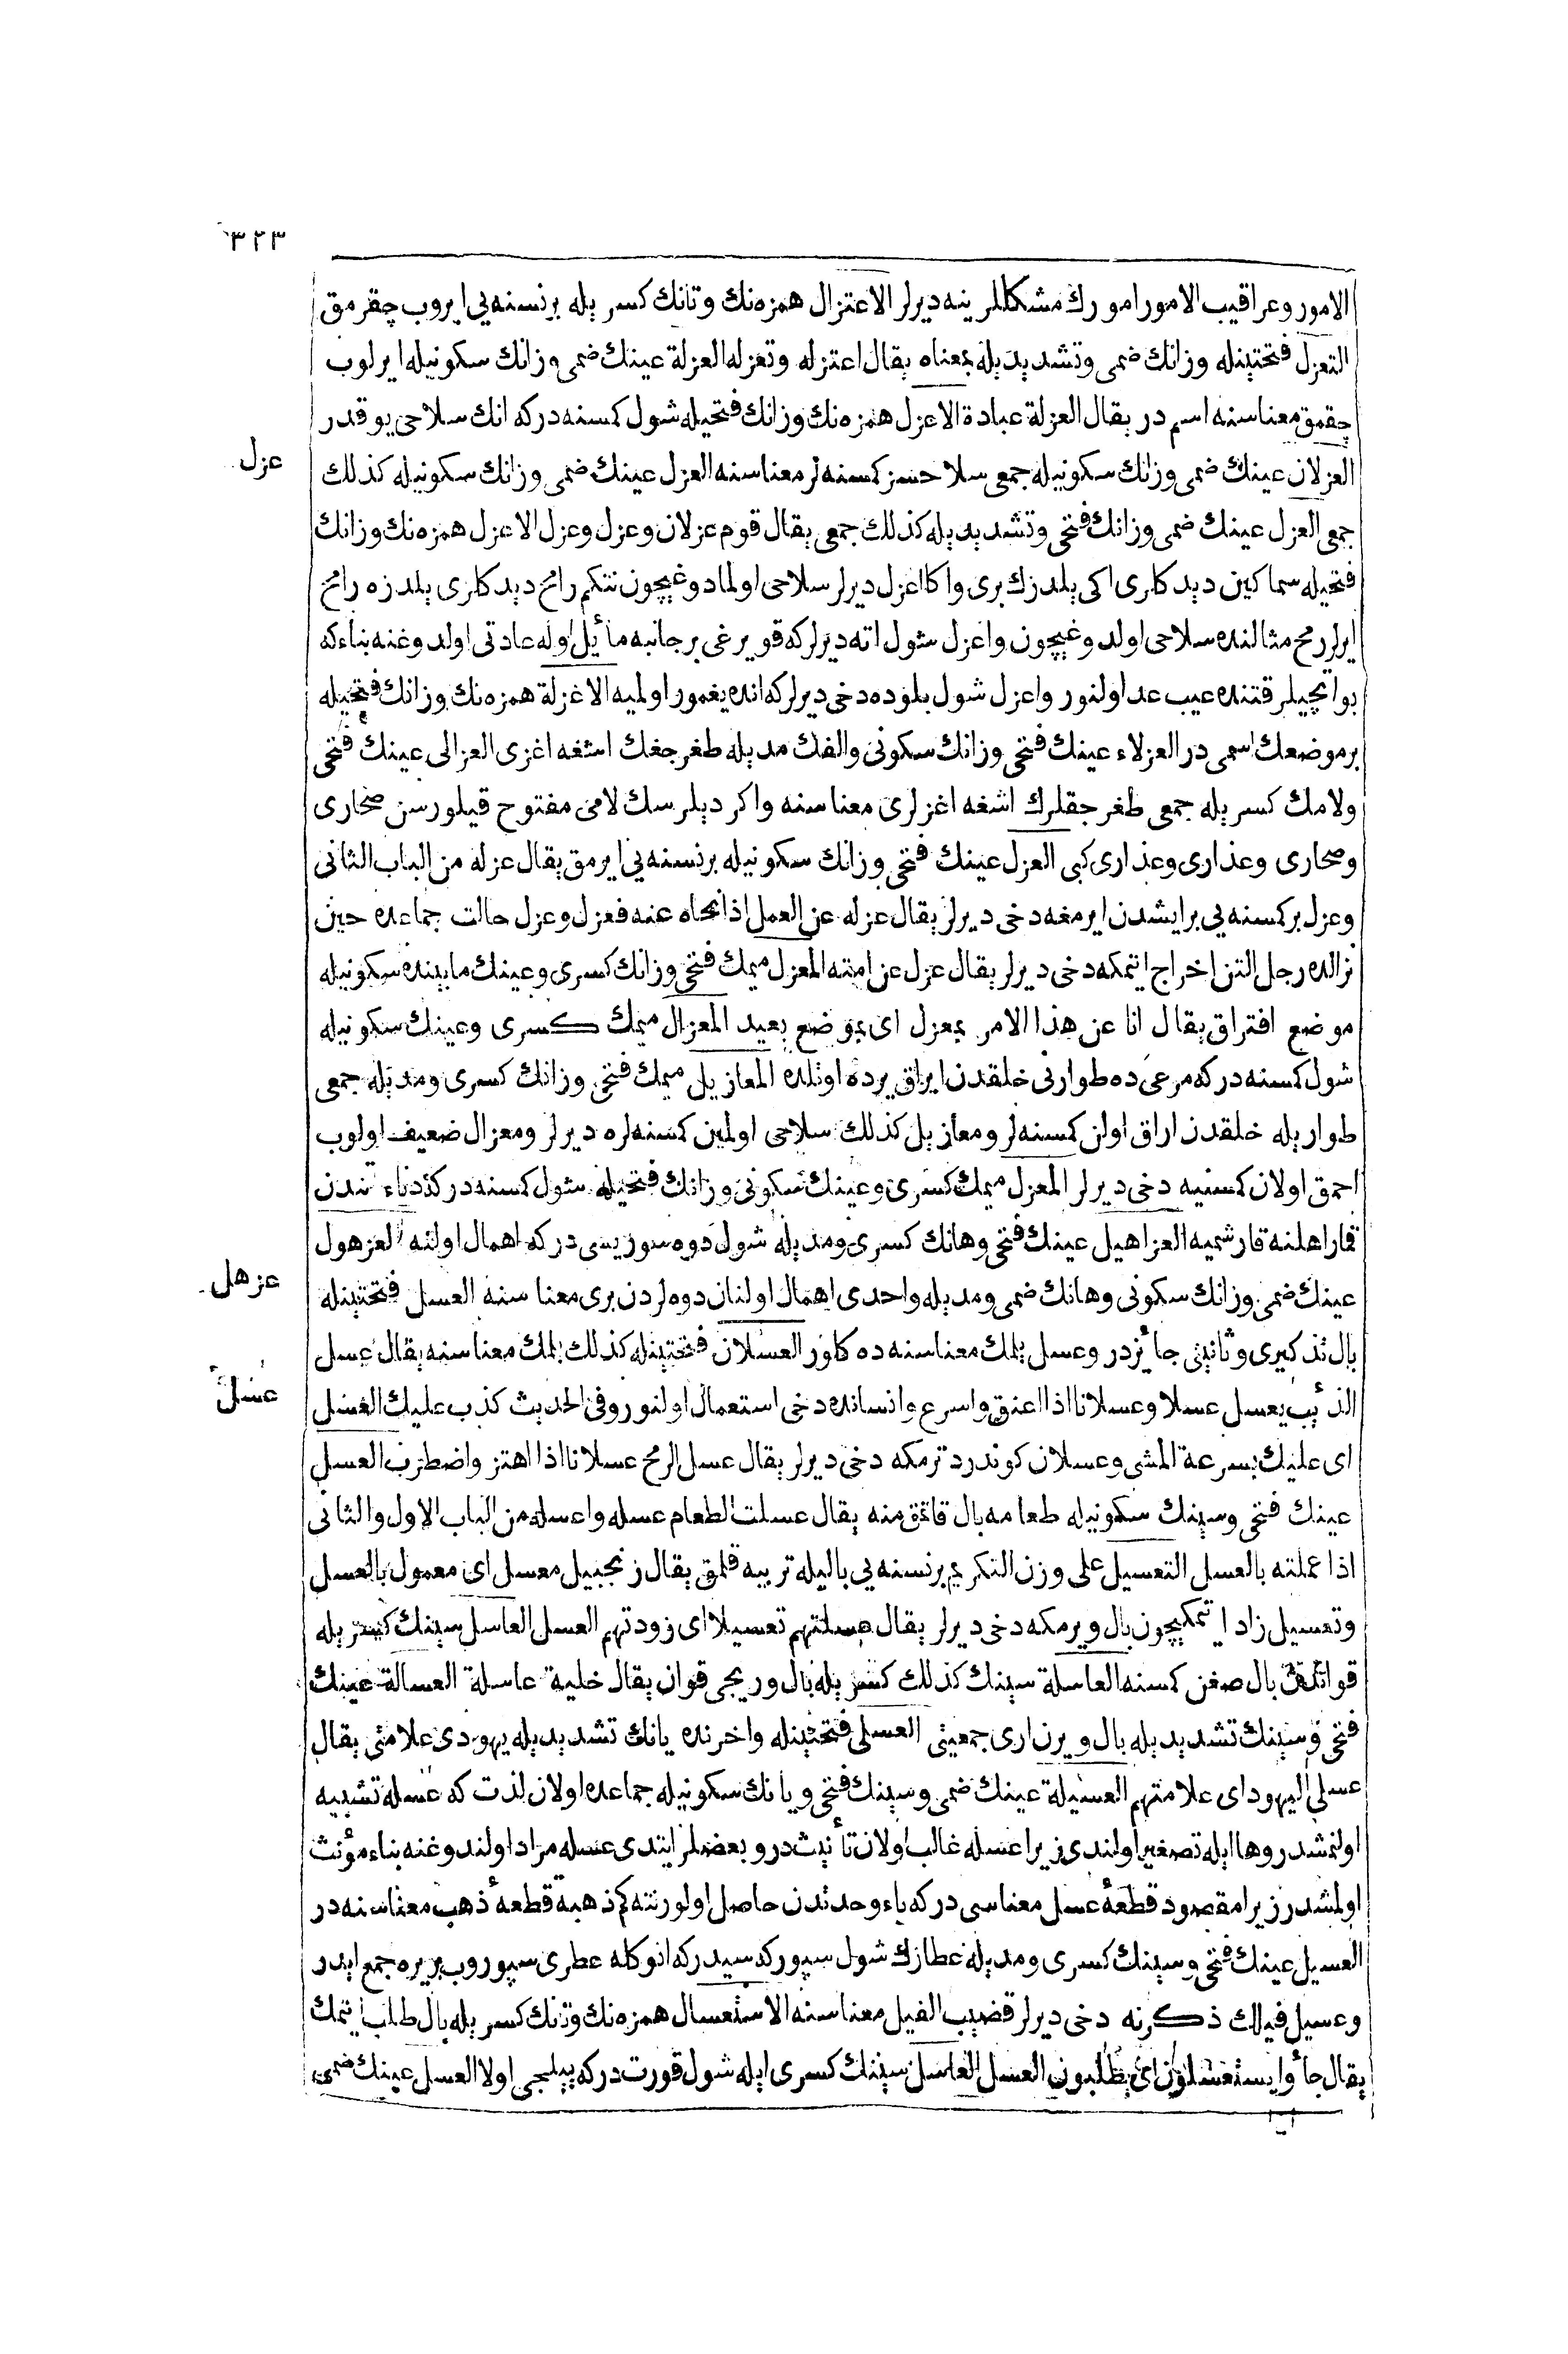 ٣٢٣
الامور وعراقيب الامور امورك مشكللرينه ديرلر الاعتزال همزه‌نك وتانك كسر يله برنسنه‌يي ايروب چقرمق
التعزل فتحتينله وزانك ضمى وتشديديله بمعناه يقال اعتزله وتعزله العزلة عينك ضمى وزانك سكونيله ايرلوب
چقمق معناسنه اسم در يقال العزلة عبادة الاعزل همزه‌نك وزانك فتحيله شول كمسنه دركه انك سلاحى يوقدر
عزل
العزلان عينك ضمى وزانك سكونيله جمعى سلاحسز كمسنه‌لر معناسنه العزل عينك ضمى وزانك سكونيله كذلك
جمعى العزل عينك ضمى وزانك فتحى وتشديديله كذلك جمعى يقال قوم عزلان وعزل وعزل الاعزل همزه‌نك وزانك
فتحيله سماكين ديدكلرى اكى يلدزك برى واكا اعزل ديرلر سلاحى اولمادوغيچون نتكم رامح ديدكلرى يلدزه رامح
ايرلر رمح مثالنده سلاحى اولدوغيچون واعزل شول اته ديرلركه قويرغى بر جانبه مائل اوله عادتى اولدوغنه بناء كه
بو اتچيلر قتنده عيب عد اولنور واعزل شول بلوده دخى ديرلركه انده يغمور اولميه الاعزلة همزه‌نك وزانك فتحيله
بر موضعك اسمى در العزلاء عينك فتحى وزانك سكونى والفك مديله طغرجغك اشغه اغزى العزالى عينك فتحى
ولامك كسر يله جمعى طغرجقلرك اشغه اغزلرى معناسنه واكر ديلرسك لامى مفتوح قيلورسن صحارى
وصحارى وعذارى وعذارى كبى العزل عينك فتحى وزانك سكونيله برنسنه‌يي ايرمق يقال عزله من الباب الثانى
وعزل بر كمسنه‌يي بر ايشدن ايرمغه دخى ديرلر يقال عزله عن العمل اذا نحاه عنه فعزل وعزل حالت جماعده حين
نزالده رجل التن اخراج اتمكه دخى ديرلر يقال عزل عن امته المعزل ميمك فتحى وزانك كسرى وعينك مابينده سكونيله
موضع افتراق يقال انا عن هذا الامر بمعزل اى بموضع بعيد المعزال ميمك كسرى وعينك سكونيله
شول كمسنه دركه مرعى ده طوارنى خلقدن ايراق يرده اوتلده المعازيل ميمك فتحى وزانك كسرى ومديله جمعى
طواريله خلقدن اراق اولن كمسنه‌لر ومعازيل كذلك سلاحى اولمين كمسنه‌لره ديرلر ومعزال ضعيف اولوب
احمق اولان كمسنيه دخى ديرلر المعزل ميمك كسرى وعينك سكونى وزانك فتحيله شول كمسنه دركه دناءتندن
قمار اهلنه قارشميه العزاهيل عينك فتحى وهانك كسرى ومديله شول دوه سوريسى دركه اهمال اولنه العزهول
عزهل
عينك ضمى وزانك سكونى وهانك ضمى ومديله واحدى اهمال اولنان دوه‌لردن برى معناسنه العسل فتحتينله
بال تذكيرى وتأنيثى جائزدر وعسل يلمك معناسنه ده كلور العسلان فتحتينله كذلك يلمك معناسنه يقال عسل
عسل
الذئب يعسل عسلا وعسلانا اذا اعنق واسرع وانسانده دخى استعمال اولنور وفى الحديث كذب عليك العسل
اى عليك بسرعة المشى وعسلان كوندر دترمكه دخى ديرلر يقال عسل الرمح عسلانا اذا اهتز واضطرب العسل
عينك فتحى وسينك سكونيله طعامه بال قاتمق منه يقال عسلت الطعام عسله واعسله من الباب الاول والثانى
اذا عملته بالعسل التعسيل على وزن التكريم برنسنه‌يي باليله تربيه قلمق يقال زنجبيل معسل اى معمول بالعسل
وتعسيل زاد اتمكيچون بال ويرمكه دخى ديرلر يقال عسلتهم تعسيلا اى زودتهم العسل العاسل سينك كسر يله
قواندن بال صغن كمسنه العاسلة سينك كذلك كسر يله بال وريجى قوان يقال خلية عاسلة العسالة عينك
فتحى وسينك تشديديله بال ويرن ارى جمعيتى العسلى فتحتينله واخرنده يانك تشديديله يهودى علامتى يقال
عسلى اليهود اى علامتهم العسيلة عينك ضمى وسينك فتحى ويانك سكونيله جماعده اولان لذت كه عسله تشبيه
اولنمشدر وها ايله تصغير اولندى زيرا عسله غالب اولان تأنيث در وبعضلر ايتدى عسله مراد اولندوغنه بناء مؤنث
اولمشدر زيرا مقصود قطعهٔ عسل معناسى دركه ياء وحدتدن حاصل اولور نته كم ذهبة قطعهٔ ذهب معناسنه در
العسيل عينك فتحى وسينك كسرى ومديله عطارك شول سپوركه سيدركه انوكله عطرى سپوروب بريره جمع ايدر
وعسيل فيلك ذكرنه دخى ديرلر قضيب الفيل معناسنه الاستعسال همزه‌نك وتانك كسر يله بال طلب اتمك
يقال جاؤا يستعسلون اى يطلبون العسل العاسل سينك كسرى ايله شول قورت دركه يييلجى اولا العسل عينك ضمى